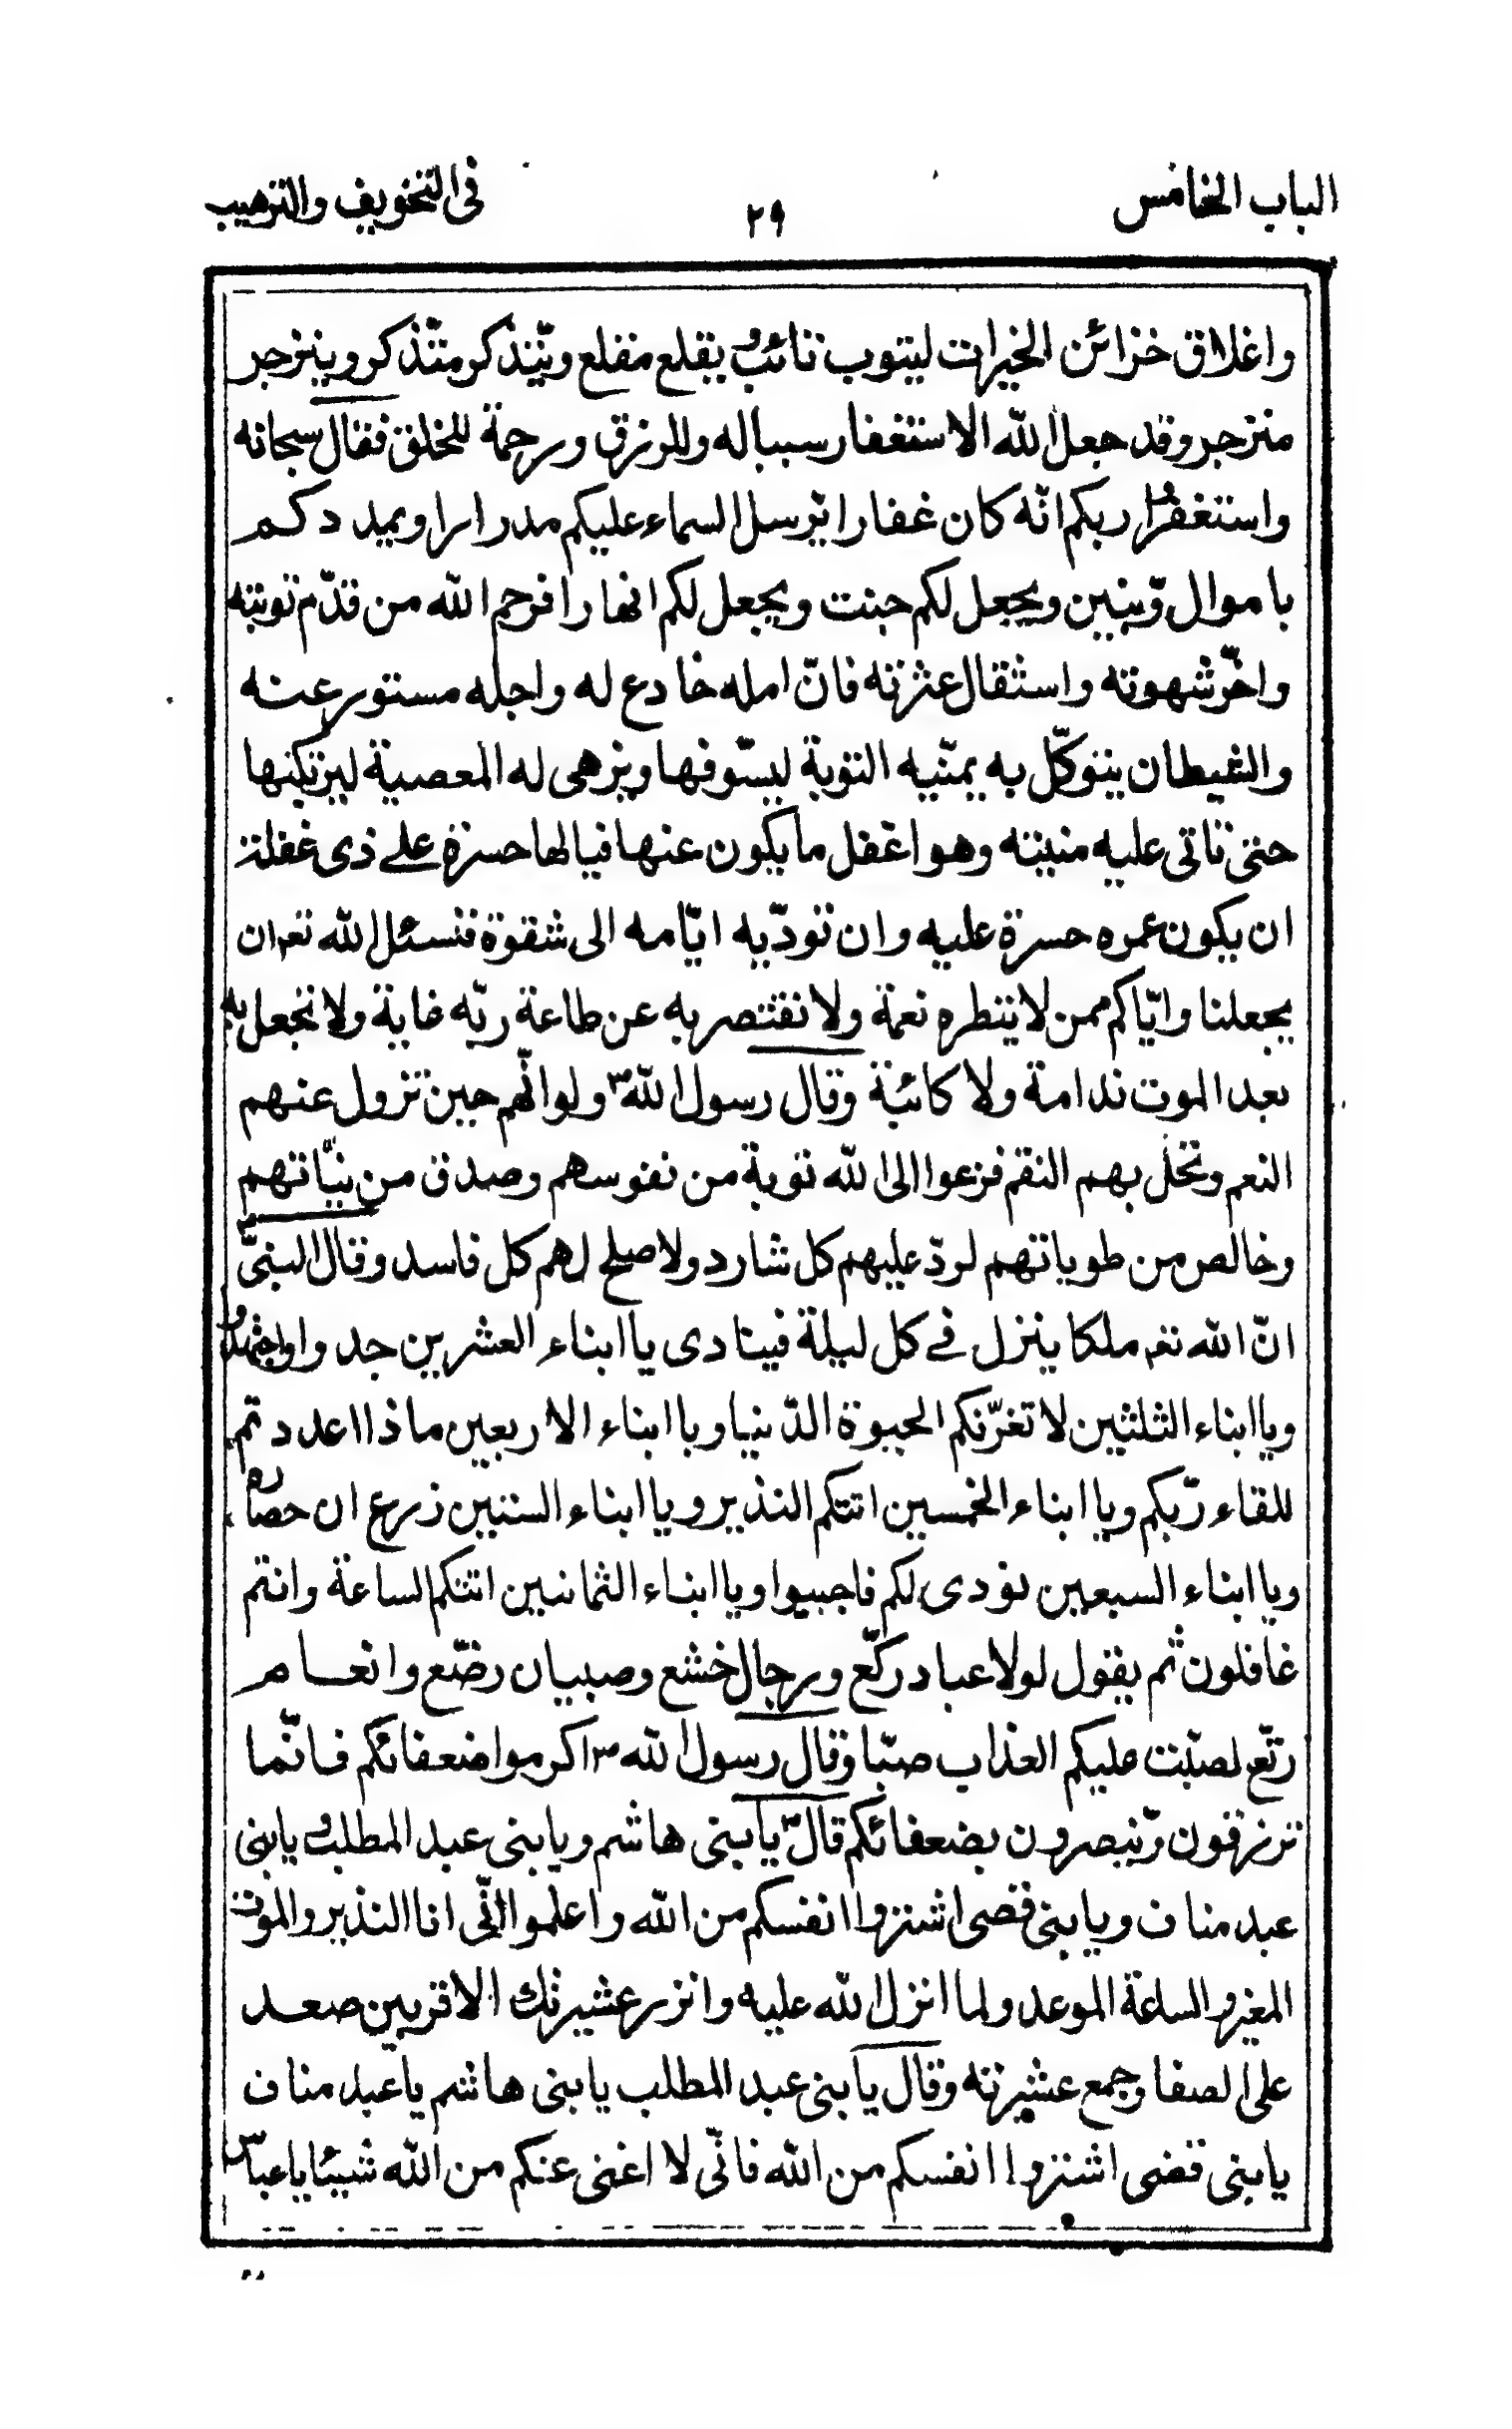 الباب الخامس
٢٩
فى التخويف والترهيب
واغلاق خزائن الخيرات ليتوب تائب و يقلع مقلع ويتذكر متذكر وينزجر
منزجر وقد جعل الله الاستغفار سببا له وللرزق ورحمة للخلق فقال سبحانه
واستغفروا ربكم انّه كان غفارا يرسل السماء عليكم مدرارا ويمددكم
باموال وّبنين ويجعل لكم جنت ويجعل لكم انهارا فرحم الله من قدّم توبته
واخّر شهوته واستقال عثرته فانّ امله خادع له واجله مستور عنه
والشيطان يتوكّل به يمنّيه التوبة ليسّوفها ويزهى له المعصية ليرتكبها
حتى تاتى عليه منيته وهو اغفل ما يكون عنها فيالها حسرة على ذى غفلة
ان يكون عمره حسرة عليه وان تودّيه ايّامه الى شقوة فنسئل الله تعم ان
يجعلنا وايّاكم ممن لا يتطره نعمة ولا نقتصر به عن طاعة ربّه غاية ولا تجعل به
بعد الموت ندامة ولا كائبة وقال رسول الله ص ولو انّهم حين تزول عنهم
النعم وتحل بهم النقم فزعوا الى الله توبة من نفوسهم وصدق من نيّاتهم
وخالص من طوياتهم لردّ عليهم كل شارد ولا صلح لهم كل فاسد وقال النبىّ ص
انّ الله تعم ملكا ينزل فى كل ليلة فينادى يا ابناء العشرين جدوا واجتهدوا
ويا ابناء الثلثين لا تغرّنكم الحيوة الدّنيا ويا ابناء الاربعين ماذا اعددتم
للقاء ربّكم ويا ابناء الخمسين اتتكم النذير ويا ابناء الستين زرع ان حصاره
ويا ابناء السبعين نودى لكم فاجيبوا ويا ابناء الثمانين اتتكم الساعة وانتم
غافلون ثم يقول لولا عباد ركّع ورجال خشع وصبيان رضّع وانعام
رتّع لصبّت عليكم العذاب صبّا وقال رسول الله ص اكرموا ضعفائكم فانّما
ترزقون وّتنصرون بضعفائكم قال ص يا بنى هاشم ويا بنى عبد المطلب و يا بنى
عبد مناف ويا بنى قصى اشتروا انفسكم من الله واعلموا انّى انا النذير والموت
المغير والساعة الموعد ولما انزل الله عليه وانزر عشيرتك الاقربين صعد
على الصفا وجمع عشيرته وقال يا بنى عبد المطلب يا بنى هاشم يا عبد مناف
يا بنى قضى اشتروا انفسكم من الله فانّى لا اغنى عنكم من الله شيئا يا عباس